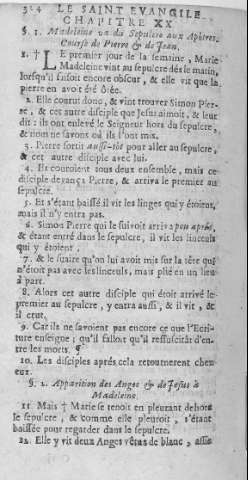 324 LE SAINT EVANGILE
CHAPITRE XX.
§. 1. Madeleine va du Sepulcre aux Apôtres.
Course de Pierre & de Jean.
1. † LE premier jour de la semaine, Marie
Madeleine vint au sepulcre dés le matin,
lorsqu'il faisoit encore obscur, & elle vit que la
pierre en avoit été ôtée.
2. Elle courut donc, & vint trouver Simon Pier-
re, & cet autre disciple que Jesus aimoit, & leur
dit: ils ont enlevé le Seigneur hors du sepulcre,
& nous ne savons où ils l'ont mis.
3. Pierre sortit aussi-tôt pour aller au sepulcre,
& cet autre disciple avec lui.
4. Ils couroient tous deux ensemble, mais ce
disciple devança Pierre, & arriva le premier au
sepulcre.
5. Et s'étant baissé il vit les linges qui y étoient,
mais il n'y entra pas.
6. Simon Pierre qui le suivoit arriva peu aprés,
& étant entré dans le sepulcre, il vit les linceuls
qui y étoient.
7. & le suaire qu'on lui avoit mis sur la tête qui
n'étoit pas avec les linceuls, mais plié en un lieu
à part.
8. Alors cet autre disciple qui étoit arrivé le
premier au sepulcre, y entra aussi, & il vit, &
il crut.
9. Car ils ne savoient pas encore ce que l'Ecri-
ture enseigne; qu'il falloit qu'il ressuscitât d'en-
tre les morts. ¶
10. Les disciples aprés cela retournerent chez
eux.
§. 2. Apparition des Anges & de Jesus à
Madeleine.
11 Mais † Marie se tenoit en pleurant dehors
le sepulcre, & comme elle pleuroit, s'étant
baissée pour regarder dans le sepulcre.
12. Elle y vit deux Anges vêtus de blanc, assis